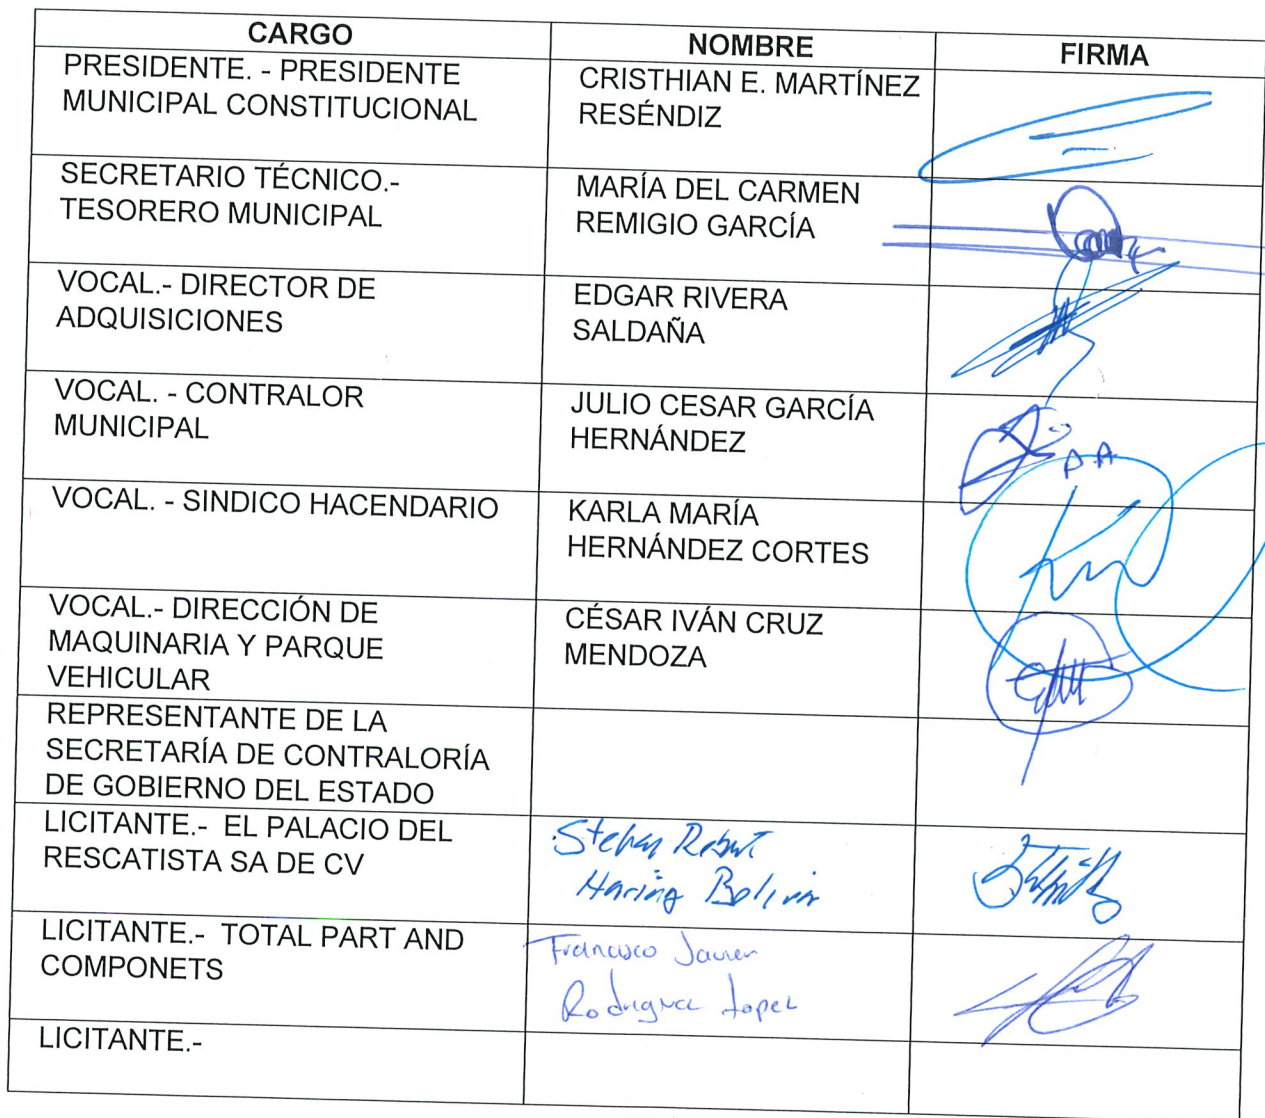 CARGO NOMBRE FIRMA
PRESIDENTE. - PRESIDENTE
MUNICIPAL CONSTITUCIONAL
CRISTHIAN E. MARTÍNEZ
RESÉNDIZ
SECRETARIO TÉCNICO.-
TESORERO MUNICIPAL
MARÍA DEL CARMEN
REMIGIO GARCÍA
VOCAL.- DIRECTOR DE
ADQUISICIONES
EDGAR RIVERA
SALDAÑA
VOCAL. - CONTRALOR
MUNICIPAL
JULIO CESAR GARCÍA
HERNÁNDEZ
P.A
VOCAL. - SINDICO HACENDARIO
KARLA MARÍA
HERNÁNDEZ CORTES
VOCAL.- DIRECCIÓN DE
MAQUINARIA Y PARQUE
VEHICULAR
CÉSAR IVÁN CRUZ
MENDOZA
REPRESENTANTE DE LA
SECRETARÍA DE CONTRALORÍA
DE GOBIERNO DEL ESTADO
LICITANTE.- EL PALACIO DEL
RESCATISTA SA DE CV
Haring Bolivar
LICITANTE.- TOTAL PART AND
COMPONETS
Francisco Javier
Rodriguez Lopez
LICITANTE.-